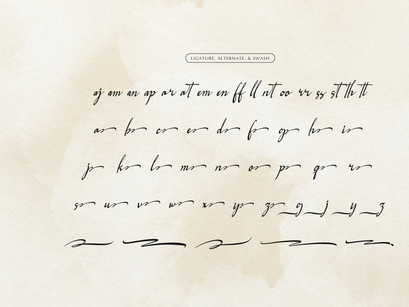 LIGATURE, ALTERNATE, & SWASH
aj am an ap ar at em en ff ll nt oo rr ss st th tt
a b c e d f g h i
j k l m n o p q r
s u v w x y z g j y z